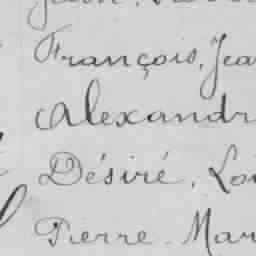 François, Jea
Alexandr
Désiré, Lou
Pierre. Mar